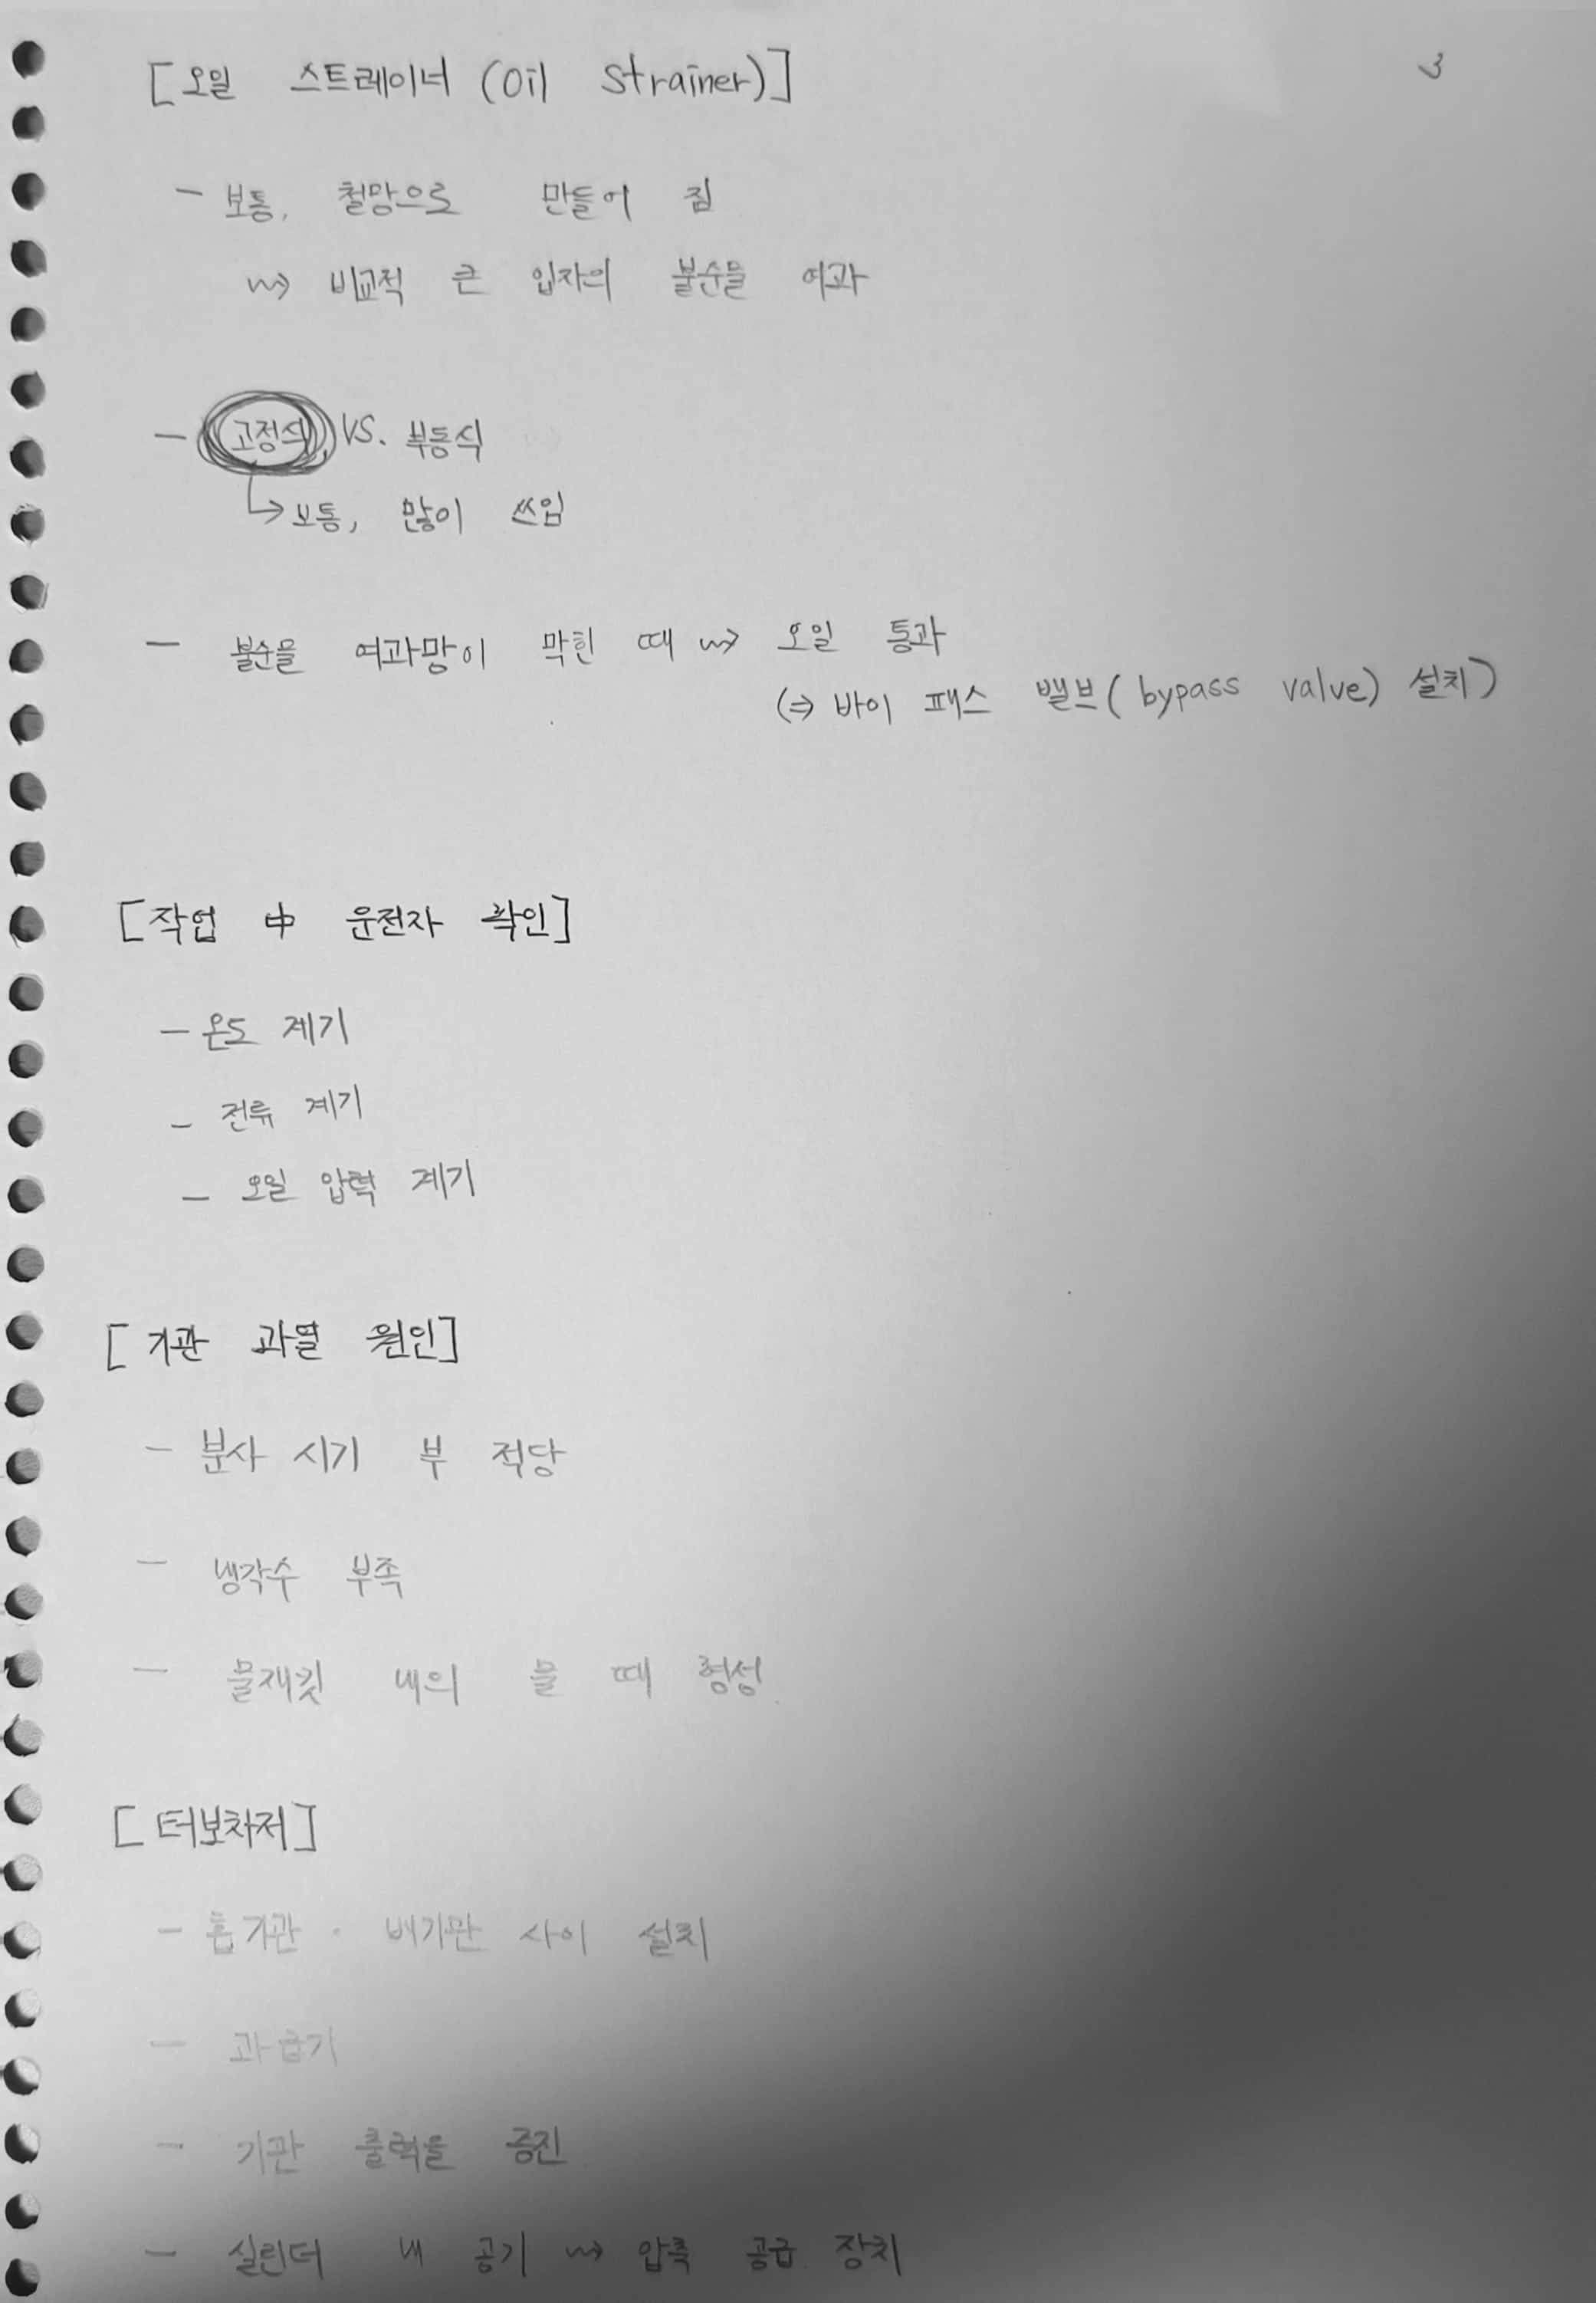 [오일 스트레이너 (Oil Strainer)]
3
- 보통, 철망으로 만들어 짐
⇝ 비교적 큰 입자의 불순물 여과
- 고정식 VS. 부동식
↳ 보통, 많이 쓰임
- 불순물 여과망이 막힌 때 ⇝ 오일 통과
(⇒ 바이 패스 밸브 (bypass valve) 설치)
[작업 中 운전자 확인]
- 온도 계기
- 전류 계기
- 오일 압력 계기
[기관 과열 원인]
- 분사 시기 부 적당
- 냉각수 부족
- 물재킷 내의 물 때 형성
[터보차저]
- 흡기관 · 배기관 사이 설치
- 과급기
- 기관 출력을 증진
- 실린더 내 공기 ⇝ 압축 공급 장치